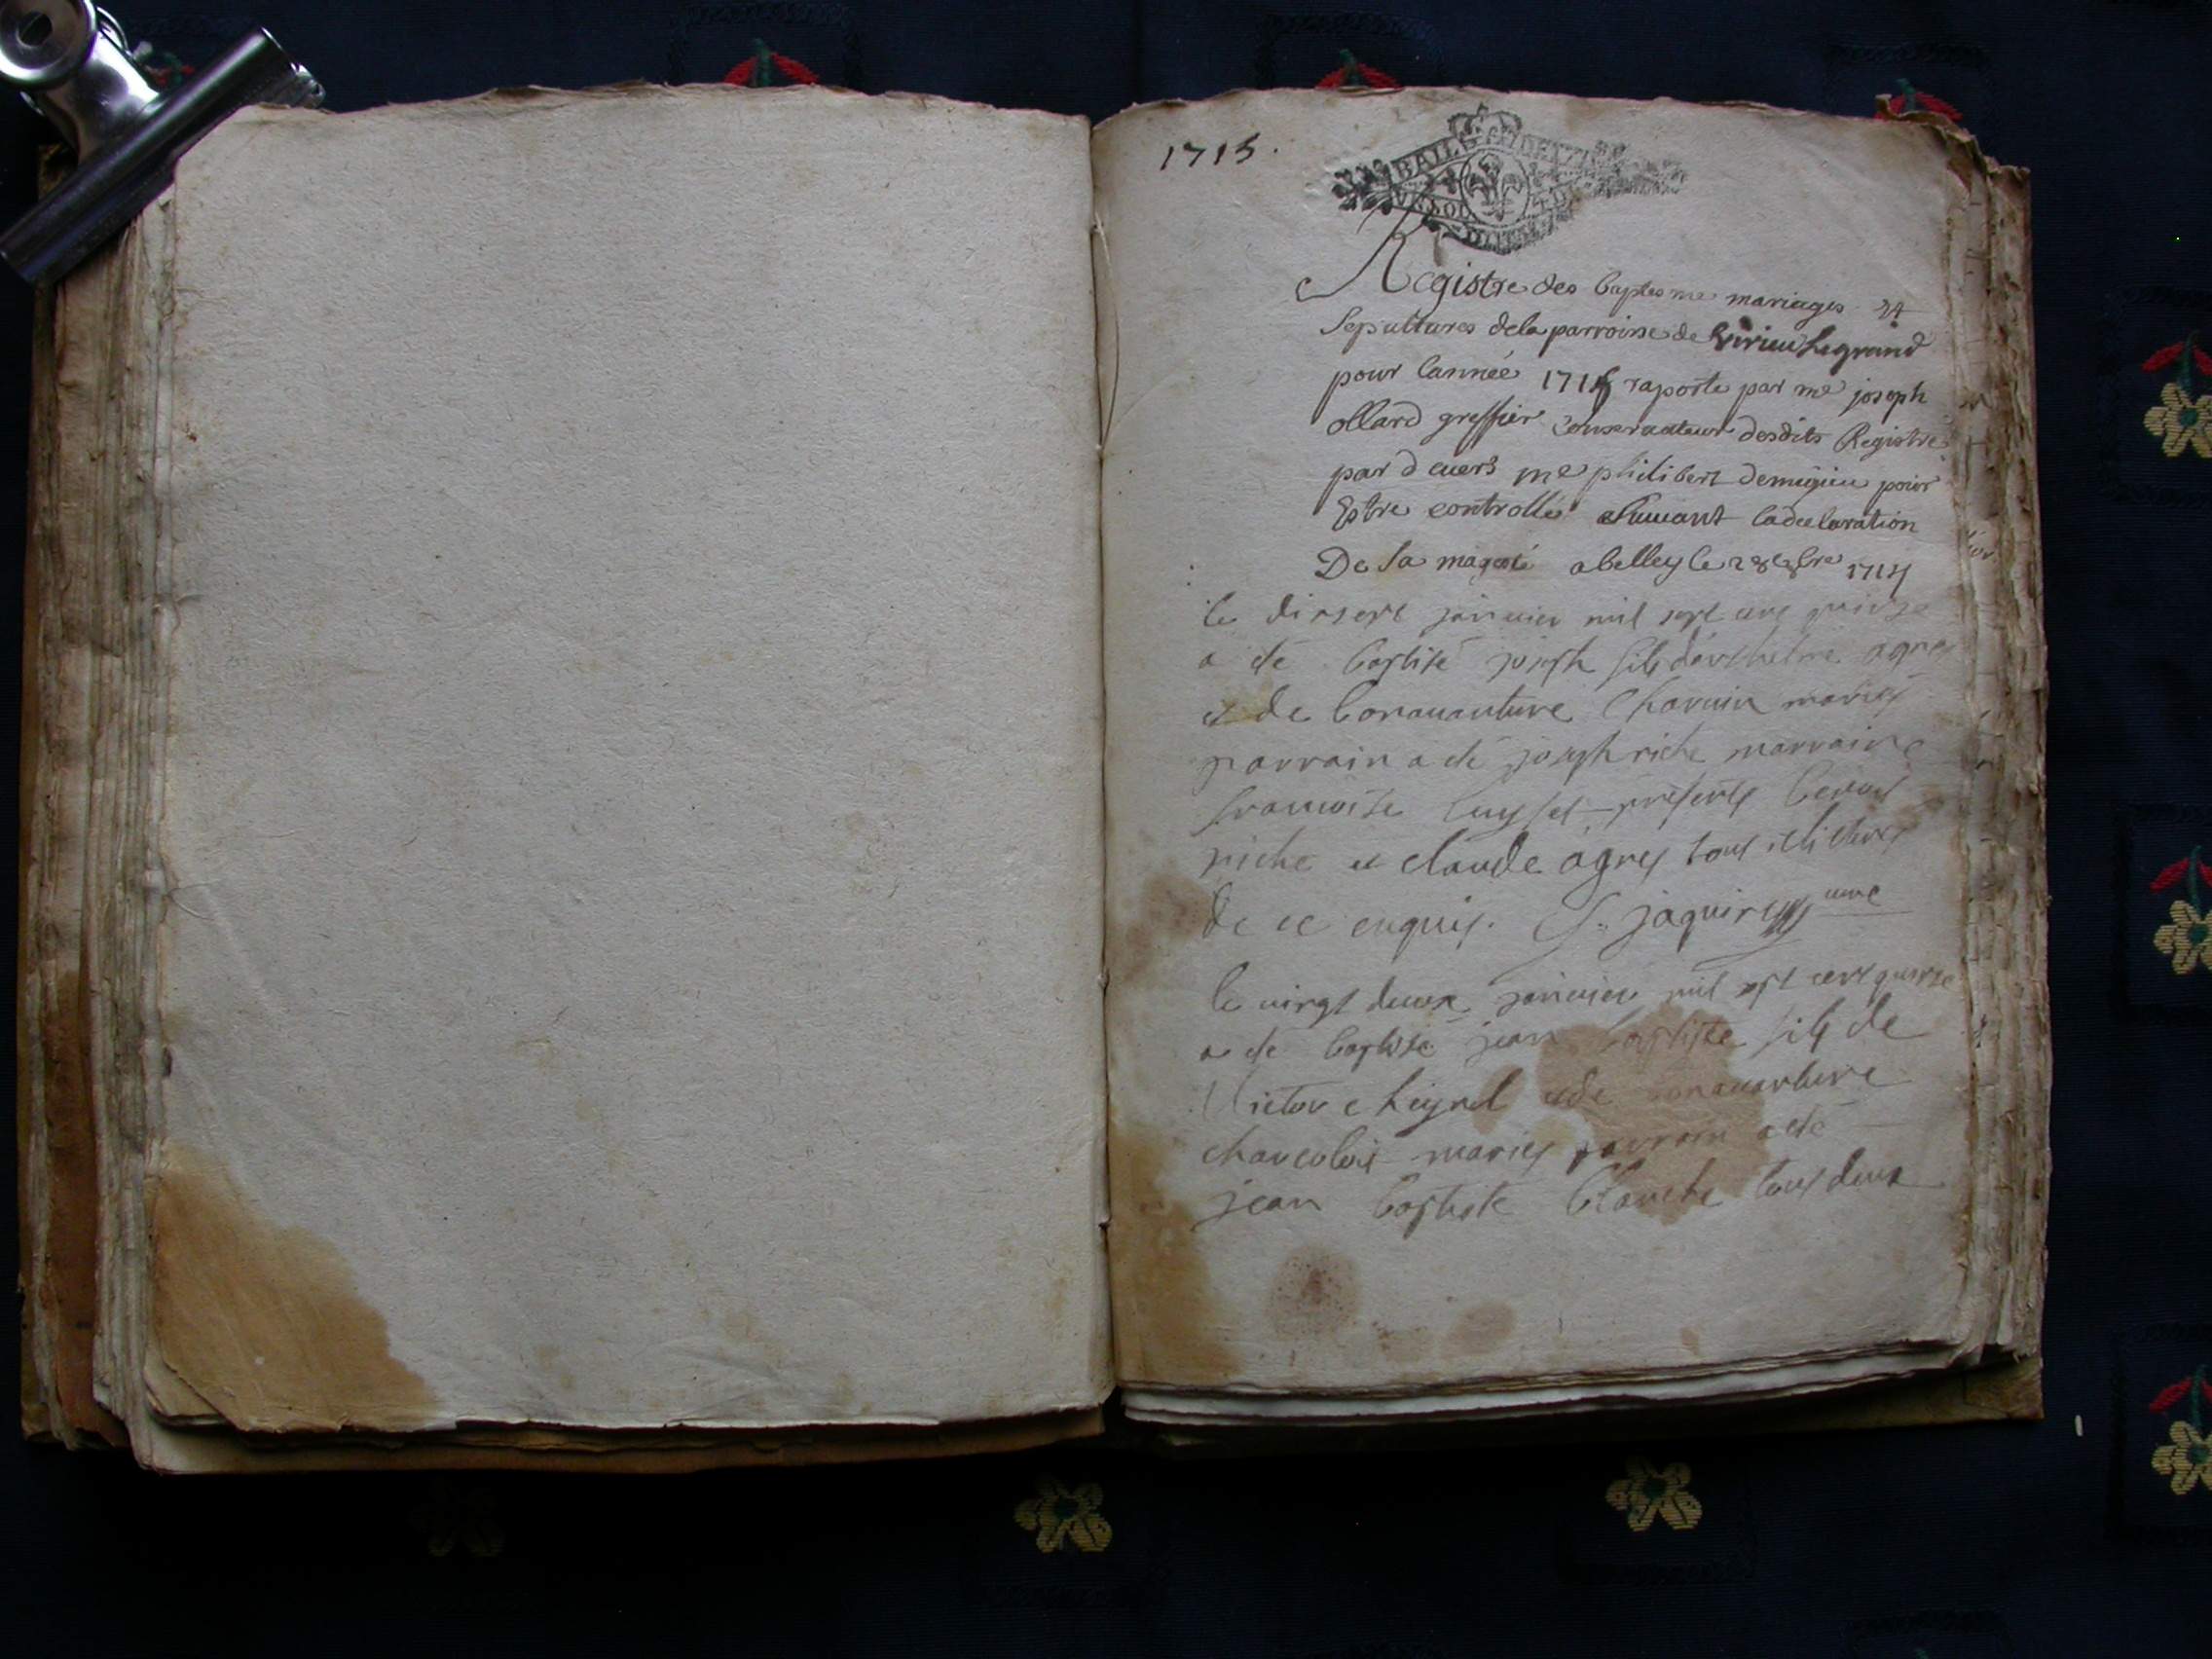 1715.
Registre des baptesme mariages et
Sepultures dela parroisse de Virieu Legrand
pour lannée 1715 raporte par me joseph
ollard greffier Conservateur desdits Registre
par d'euers me philibert demigieu pour
Estre controllé Suiuant ladeclaration
De Sa majesté abelley le 1714
le dixsept januier mil sept cens quinze
a ete baptisé joseph fils d'anthelme agnes
et de bonauanture Chavuin mariés
parrain a eté joseph riche marraine
francoise presents benoit
riche et claude agnes tous illiteres
de ce enquis. jaquin curé
le vingt deux januier mil sept cens quinze
a eté baptisé jean baptiste fils de
Victor et de bonauanture
mariés parrain a eté
jean baptiste blanche tous deux